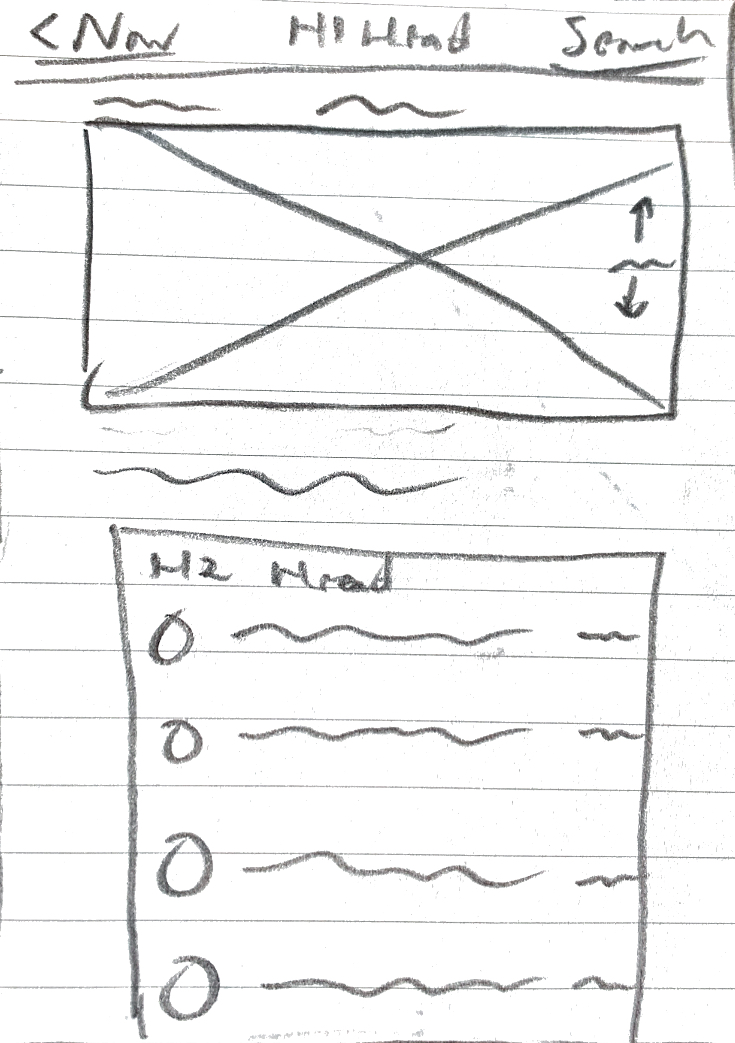 < Nav H1 Head Search
H2 Head